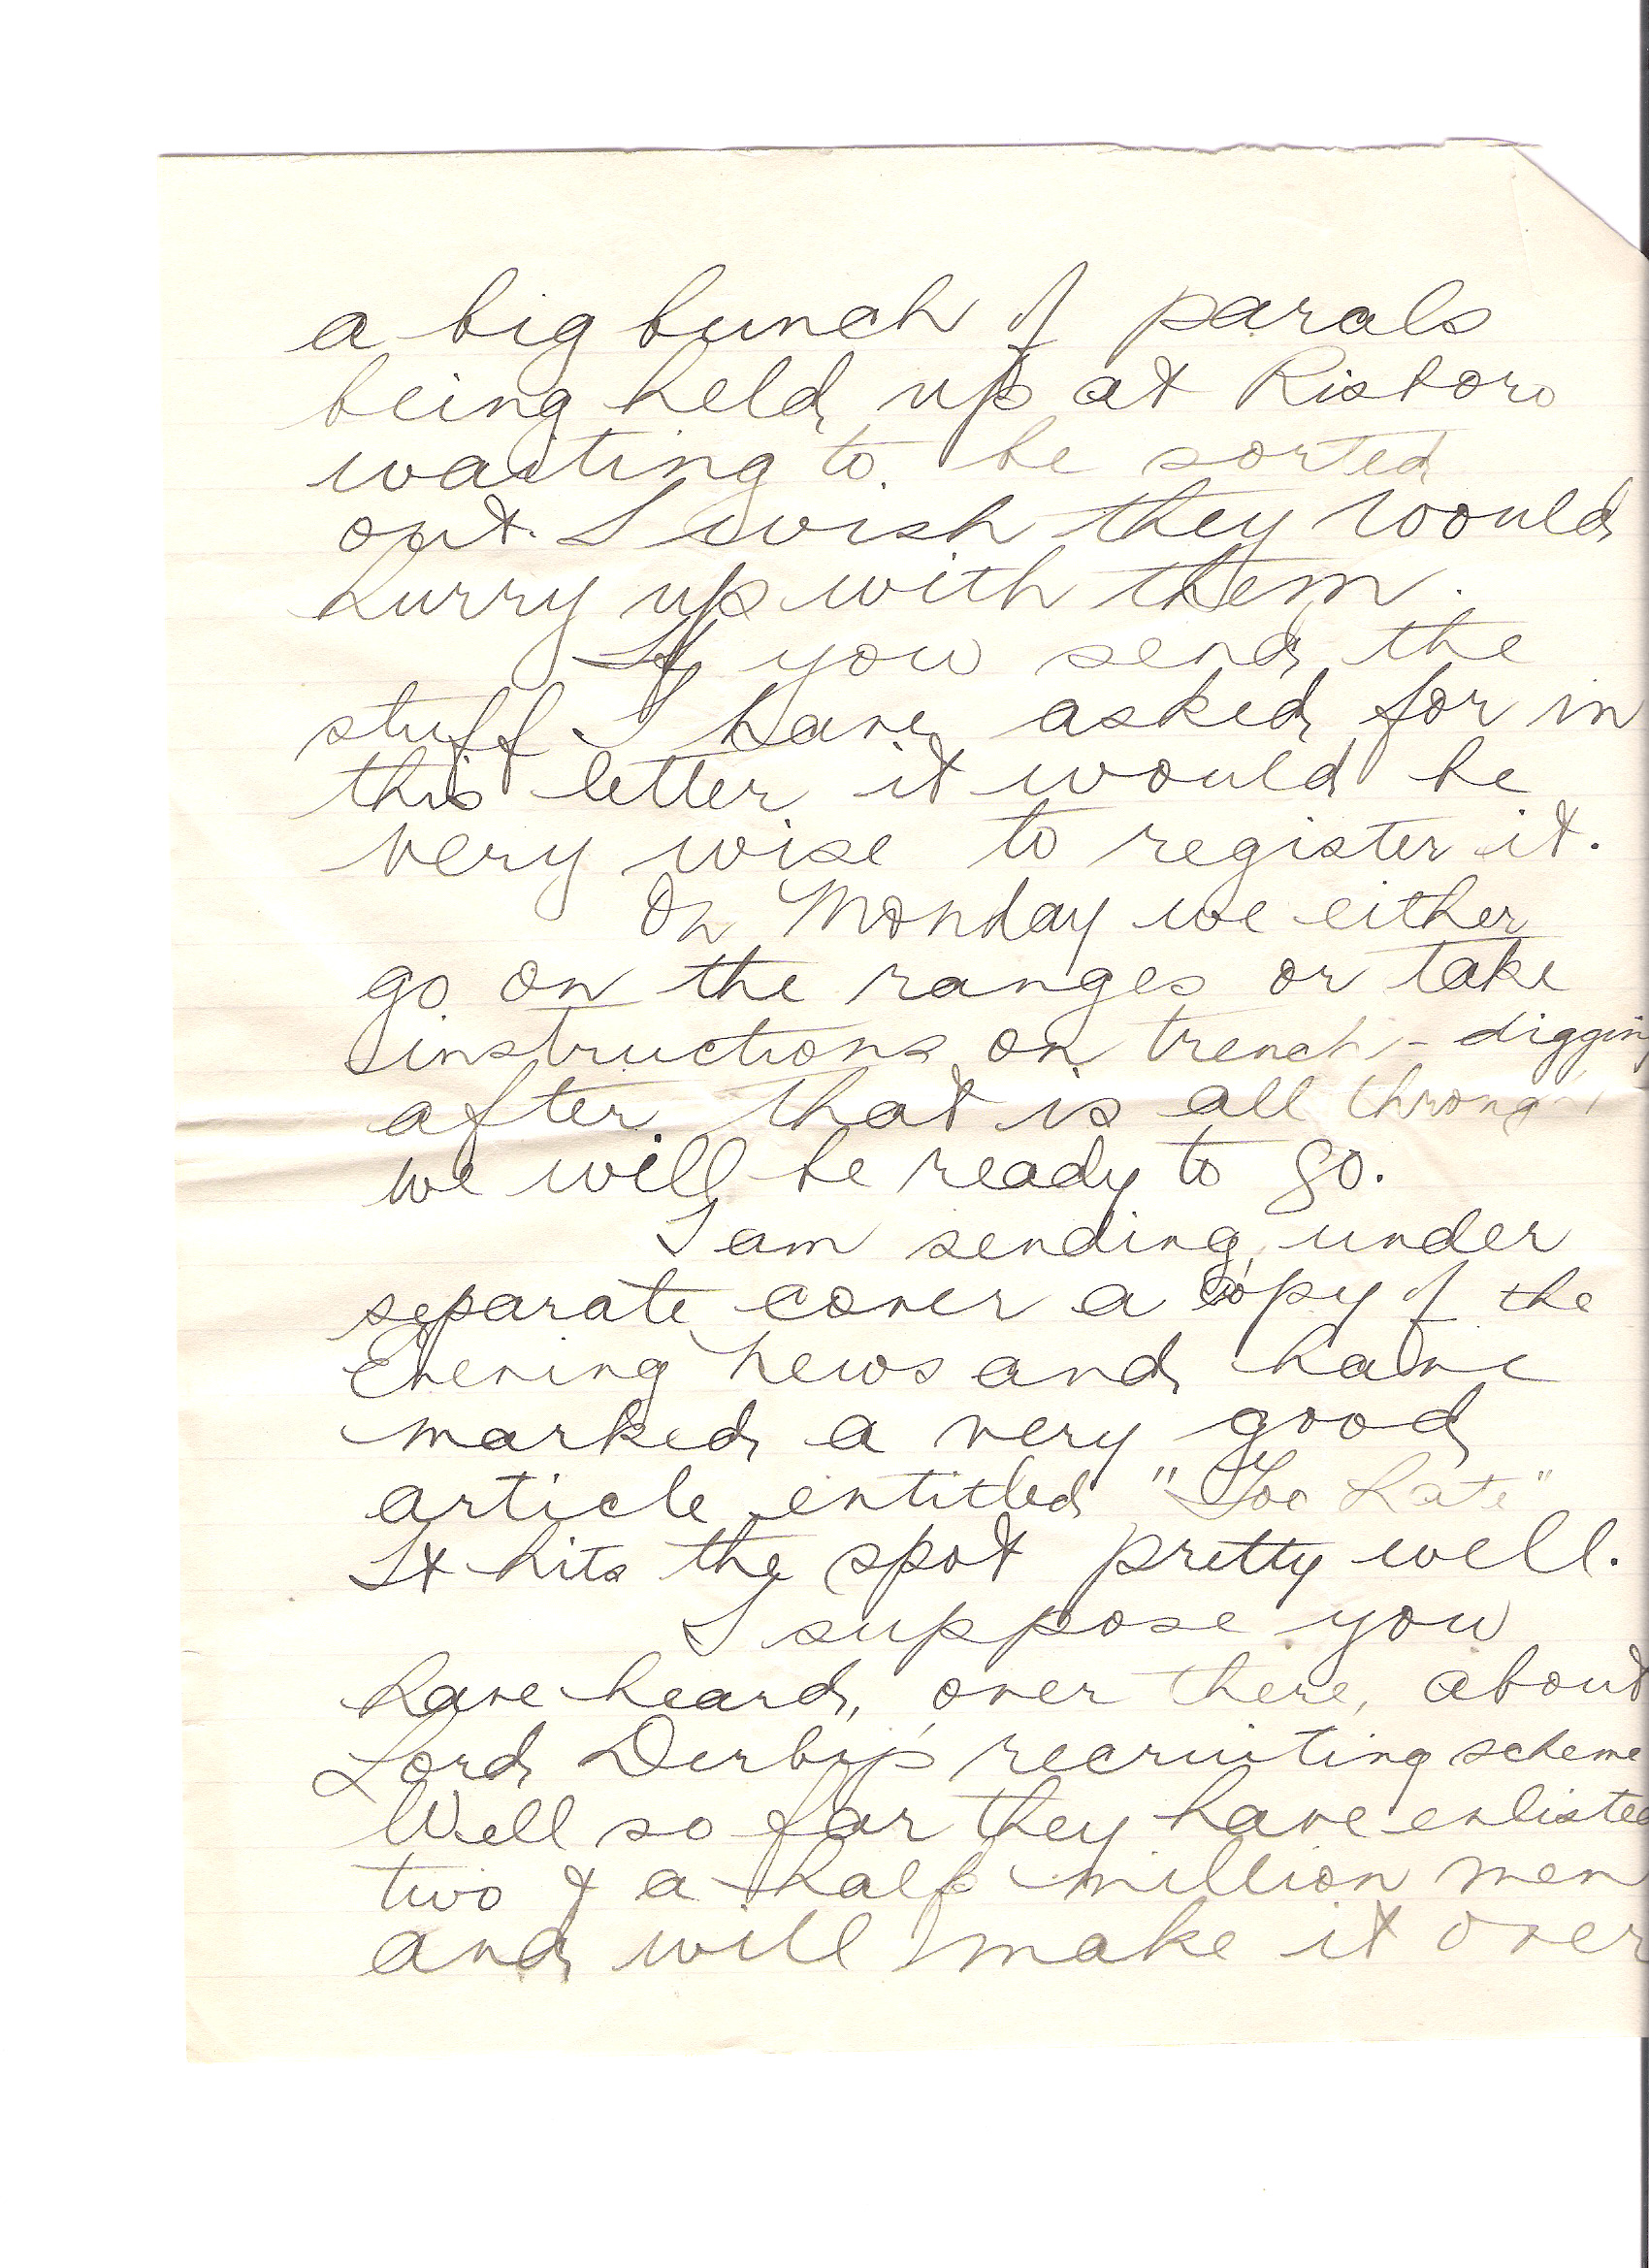 a big bunch of parcals
being held up at Risboro
waiting to be sorted
out. I wish they would
hurry up with them.
If you send the
stuff I have asked for in
this letter it would be
very wise to register it.
On Monday we either
go on the ranges or take
instructions on trench-digging
after that is all through
we will be ready to go.
I am sending under
separate cover a copy of the
Evening News and have
marked a very good
article entitled "Too Late"
It hits the spot pretty well.
I suppose you
have heard, over there, about
Lord Derby's recruiting scheme
Well so far they have enlisted
two & a half million men
and will make it over